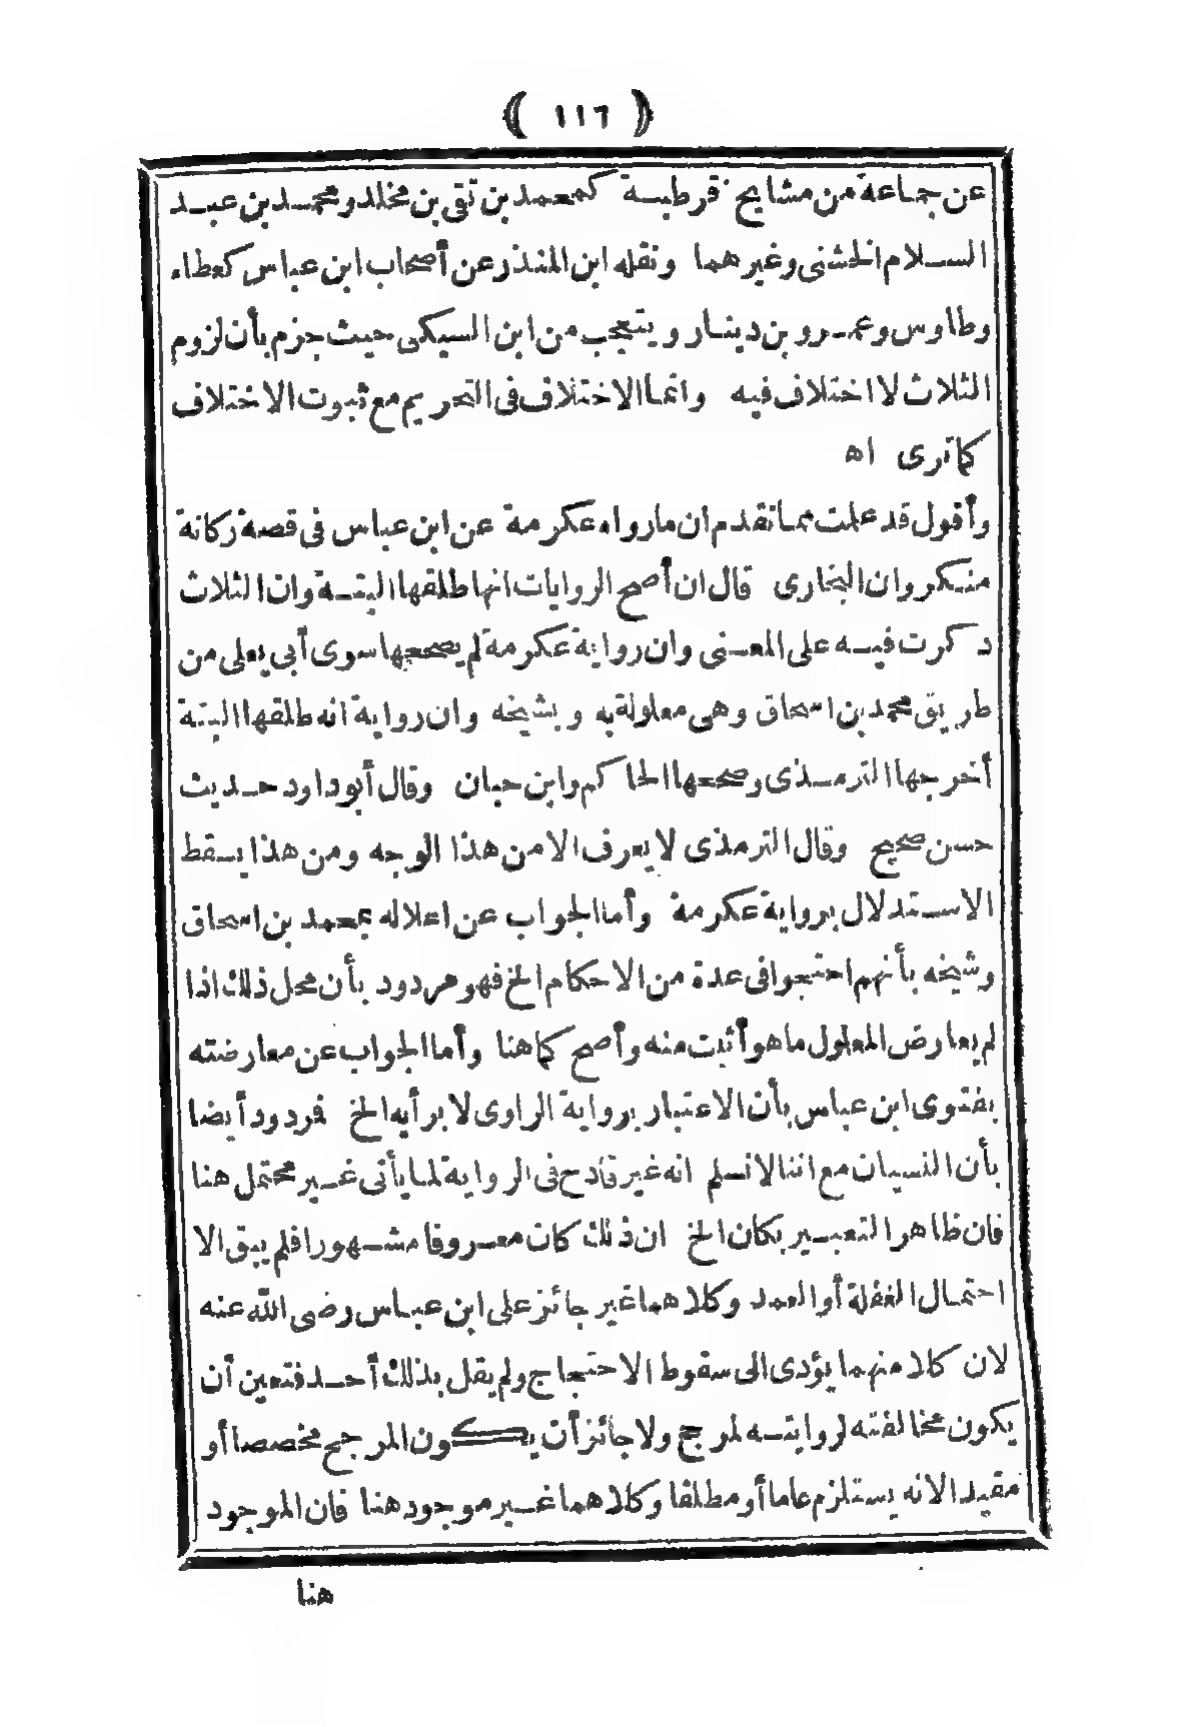 ﴿ ١١٦ ﴾
عن جماعة من مشايخ قرطبة كمحمد بن تقى بن مخلد ومحمد بن عبد
السلام الخشنى وغيرهما ونقله ابن المنذر عن أصحاب ابن عباس كعطاء
وطاوس وعمرو بن دينار ويتعجب من ابن السيكى حيث جزم بأن لزوم
الثلاث لا اختلاف فيه وانما الاختلاف فى التحريم مع ثبوت الاختلاف
كماترى اه
وأقول قد علمت مما تقدم ان ما رواه عكرمة عن ابن عباس فى قصة ركانة
منكر وان البخارى قال ان أصح الروايات انها طلقها البتة وان الثلاث
ذكرت فيه على المعنى وان رواية عكرمة لم يصححها سوى أبى يعلى من
طريق محمد بن اسحاق وهى معلولة به وبشيخه وان رواية انه طلقها البتة
أخرجها الترمذى وصححها الحاكم وابن حبان وقال أبو داود حديث
حسن صحيح وقال الترمذى لا يعرف الا من هذا الوجه ومن هذا يسقط
الاستدلال برواية عكرمة وأما الجواب عن اعلاله بمحمد بن اسحاق
وشيخه بأنهم احتجوا فى عدة من الاحكام الخ فهو مردود بأن محل ذلك اذا
لم يعارض المعلول ما هو أثبت منه وأصح كما هنا وأما الجواب عن معارضته
بفتوى ابن عباس بأن الاعتبار برواية الراوى لا برأيه الخ فردود أيضا
بأن النسيان مع اننا لا نسلم انه غير قادح فى الرواية لما يأتى غير محتمل هنا
فان ظاهر التعبير بكان الخ ان ذلك كان معروفا مشهورا فلم يبق الا
احتمال الغفلة أو العمد وكلاهما غير جائز على ابن عباس رضى الله عنه
لان كلا منهما يؤدى الى سقوط الاحتجاج ولم يقل بذلك أحد فتعين أن
يكون مخالفته لروايته لمرجح ولا جائز أن يكون المرجح مخصصا أو
مقيدا لانه يستلزم عاما أو مطلقا وكلاهما غير موجود هنا فان الموجود
هنا